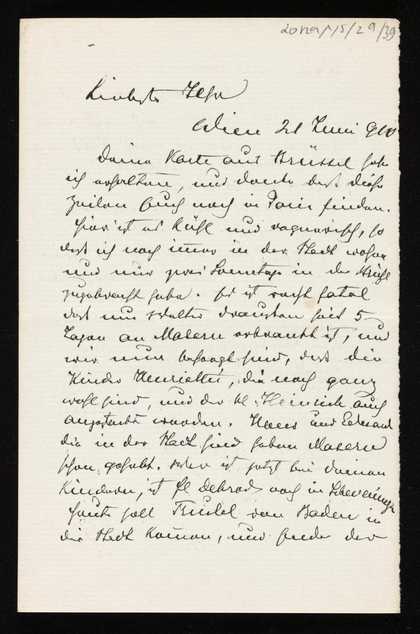 Liebste
Wien 21 Juni 910
Deine Karte aus Brüssel habe
ich erhalten, und denke dass diese
Zeilen Euch noch in Paris finden.
Hier ist es kühl und regnerisch, so
dass ich noch immer in der Stadt wohne
und nur zwei Sonntage in der
zugebracht habe. Es ist recht fatal
dass nun draussen seit 5
Tagen an Masern erkrankt ist, und
wir nun besorgt sind, dass die
Kinder Henriettes, die noch ganz
wohl sind, und der kl. Heinrich auch
angesteckt werden. Hans und Eduard
die in der Stadt sind haben Masern
schon gehabt. ist jetzt bei
Kindern, ist Fl noch in
Heute soll von Baden in
die Stadt kommen, und der